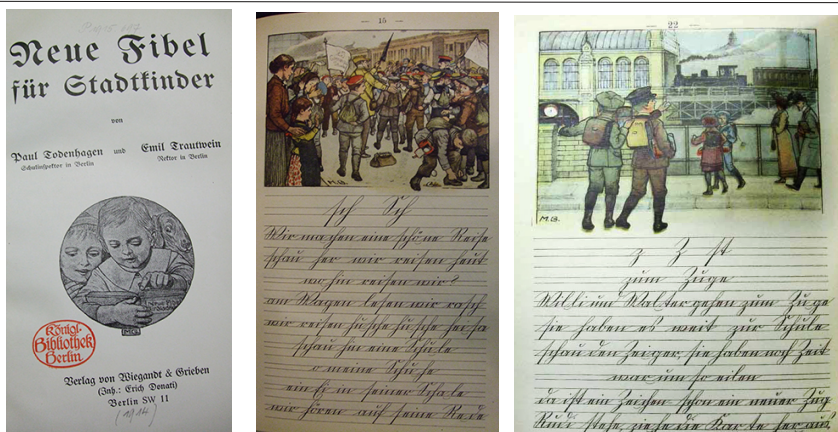 Neue Fibel
für Stadtkinder
von
Paul Todenhagen und Emil Trautwein
Schulinspektor in Berlin Rektor in Berlin
Königl.
Bibliothek
Berlin
Verlag von Wiegandt & Grieben
(Inh.: Erich Donati)
Berlin SW 11
(1914)
— 15 —
sch Sch
Wir machen eine schöne Reise
schau her wir reisen heut
wohin reisen wir?
am Wagen lesen wir rasch
wir reisen husche husche
schau hin eine Schule
o meine Schuhe
ein Ei in seiner Schale
wir hören auf seine Rede
— 22 —
M.G.
z Z st
zum Zuge
Willi und Walter gehen zum Zuge
sie haben es weit zur Schule
schau den Zeiger, sie haben noch Zeit
warum so eilen
da ist ein Zeichen schon ein neuer Zug
Rudi stehe, ziehe die Karte heraus